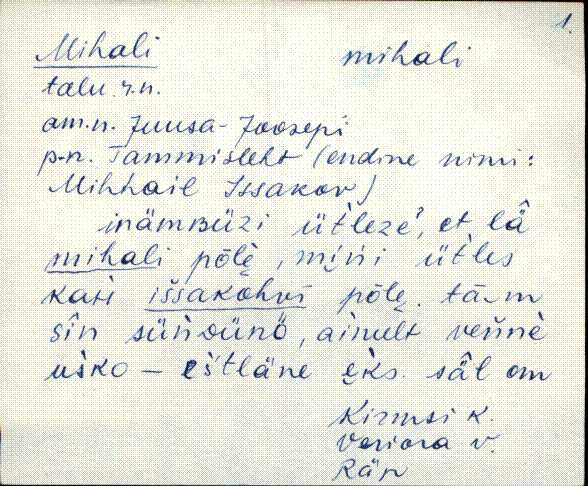 1.
Mihali mihali
talu r.n.
am.n. Juusa-Joosepi
p.n. Tammisleht (endine nimi:
Mihhail Issakov)
inämʙüzi üt́leze', et lä̂
mihali põlè, mińi üt́les
kaśi iššakohvi põlè. tǟm
sîn sündünö, ainult veńnè
uśko – eštläne ęks. sä̂l om
Kirmsi k.
Veriora v.
Räp